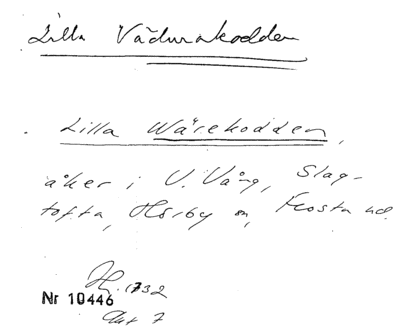 Lilla Vädurakodden
Lilla Wärekodden,
åker i V. Vång, Slag-
tofta, Hörby sn, Frosta hd.
Hj. 1732
Nr 10446
Akt 7